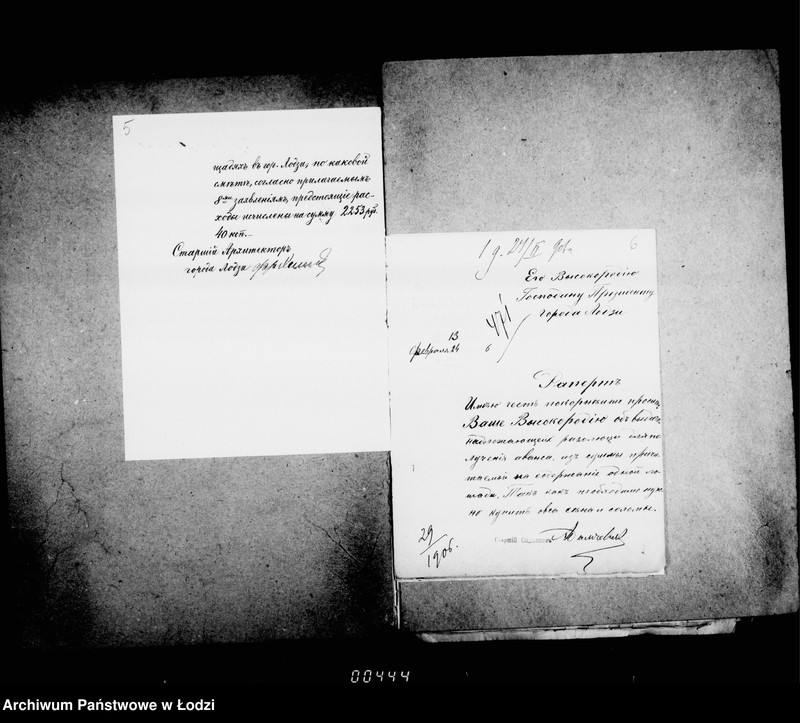 5
щадяхъ въ гор. Лодзи, по каковой
смѣтѣ, согласно прилагаемымъ
8ми заявленіямъ, предстоящіе рас-
ходы исчислены на сумму 2253 руб.
40 коп.
Старшій Архитекторъ
города Лодзи
6
Его Высокородію
Господину Президенту
города Лодзи
471
13
Февраля 24
6
Рапортъ
Имѣю честь покорнѣйше просить
Ваше Высокородію объ выдачѣ
надлежающей резолюціи
лученія аванса, изъ суммы
на содержаніе одной ло-
шади. Такъ какъ необходимо нуж-
но купить овса сѣна и соломы.
Старшій
29/1906.
00444
Archiwum Państwowe w Łodzi